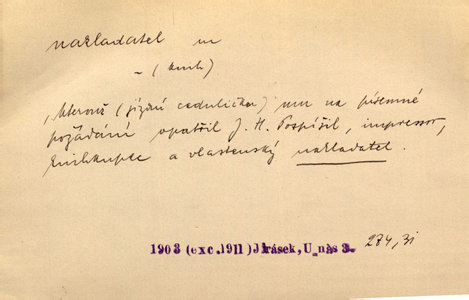 nakladatel m
~ (knih)
, kterouž (jízdní ceduličku) mu na písemné
požádání opatřil J. H. Pospíšil, impressor,
knihkupec a vlastenský nakladatel.
1903 (exc. 1911) Jirásek, U nás 3. 284, 31